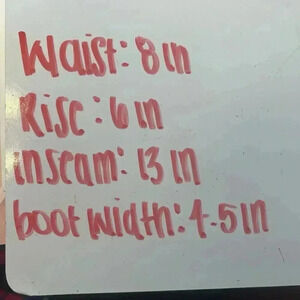 Waist: 8 in
Rise: 6 in
inseam: 13 in
boot width: 4.5 in